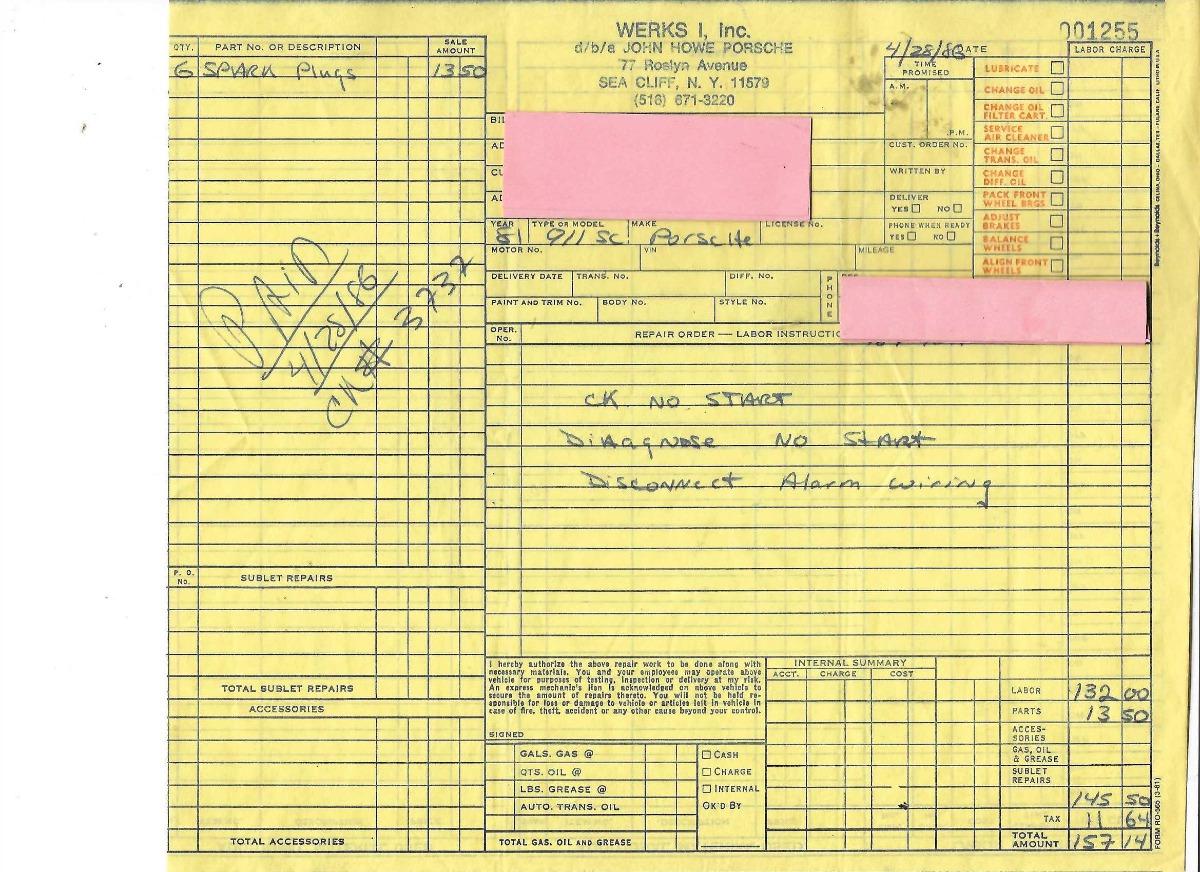 WERKS I, Inc.
d/b/a JOHN HOWE PORSCHE
77 Roslyn Avenue
SEA CLIFF, N. Y. 11579
(516) 671-3220
001255
QTY. PART No. OR DESCRIPTION SALE AMOUNT
6 SPARK Plugs 13 50
4/28/86 DATE
TIME PROMISED
A.M.
P.M.
CUST. ORDER No.
WRITTEN BY
DELIVER
YES NO
PHONE WHEN READY
YES NO
LABOR CHARGE
LUBRICATE
CHANGE OIL
CHANGE OIL
FILTER CART.
SERVICE
AIR CLEANER
CHANGE
TRANS. OIL
CHANGE
DIFF. OIL
PACK FRONT
WHEEL BRGS
ADJUST
BRAKES
BALANCE
WHEELS
ALIGN FRONT
WHEELS
YEAR TYPE OR MODEL MAKE LICENSE No.
81 911 SC PorscHe
MOTOR No. VIN MILEAGE
DELIVERY DATE TRANS. No. DIFF. No.
PAINT AND TRIM No. BODY No. STYLE No.
PHONE
PAID
4/28/86
CK# 3737
OPER. No. REPAIR ORDER — LABOR INSTRUCTIO
CK NO START
DiAgnose NO StARt
DiscoNNect Alarm wiring
P. O. No. SUBLET REPAIRS
TOTAL SUBLET REPAIRS
ACCESSORIES
TOTAL ACCESSORIES
I hereby authorize the above repair work to be done along with
necessary materials. You and your employees may operate above
vehicle for purposes of testing, inspection or delivery at my risk.
An express mechanic's lien is acknowledged on above vehicle to
secure the amount of repairs thereto. You will not be held re-
sponsible for loss or damage to vehicle or articles left in vehicle in
case of fire, theft, accident or any other cause beyond your control.
SIGNED
GALS. GAS @
QTS. OIL @
LBS. GREASE @
AUTO. TRANS. OIL
TOTAL GAS, OIL AND GREASE
CASH
CHARGE
INTERNAL
OK'D BY
INTERNAL SUMMARY
ACCT. CHARGE COST
LABOR 132 00
PARTS 13 50
ACCES-
SORIES
GAS, OIL
& GREASE
SUBLET
REPAIRS
145 50
TAX 11 64
TOTAL
AMOUNT 157 14